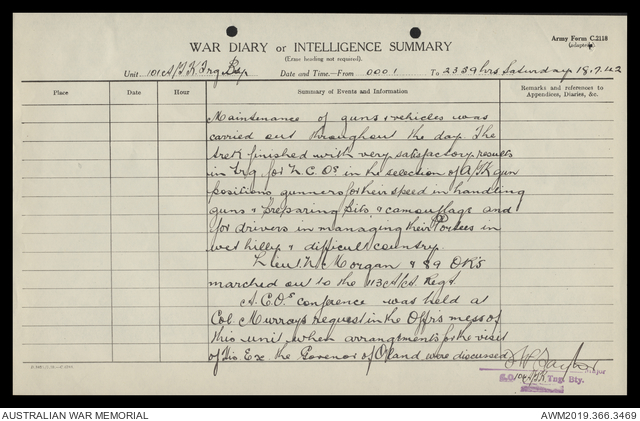 Army Form C.2118
(adapted)
WAR DIARY or INTELLIGENCE SUMMARY
(Erase heading not required).
Unit 101 A/TK Trg Bty Date and Time—From 0001 To 2339hrs Saturday 18.7.42
Place Date Hour Summary of Events and Information Remarks and references to Appendices, Diaries, &c.
Maintenance of guns & vehicles was
carried out throughout the day. The
week finished with very satisfactory results
in trg. for N.C.Os in the selection of A/TK gun
positions, gunners for their speed in handling
guns & preparing pits & camouflage and
for drivers in managing their Portees in
wet hilly & difficult country.
Lieut N. Morgan & 89 OR's
marched out to the 113 A/A Regt
A C.O.s conference was held at
Col. Murrays request in the Offrs mess of
this unit when arrangments for the visit
of His Ex. the Govenor of Q'land were discussed
Taylor Major
101 A/TK Tng. Bty.
AUSTRALIAN WAR MEMORIAL AWM2019.366.3469